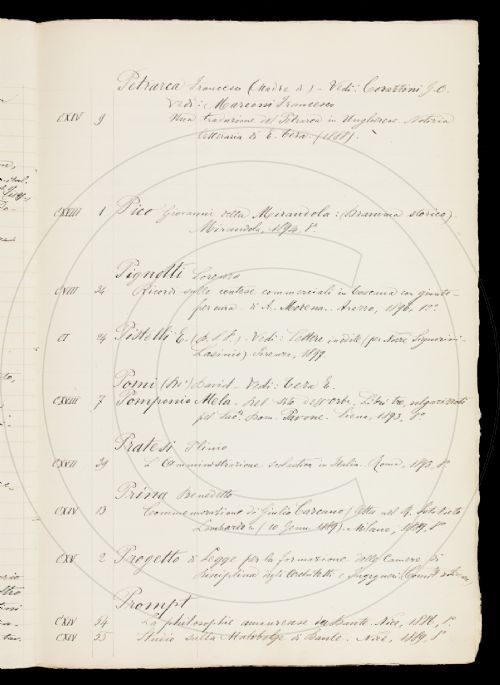 Petrarca Francesco (Madre di) - Vedi: Corazzini G. O.
Vedi: Marconi Francesco
CXIV 9 Una traduzione del Petrarca in Ungherese. Notizia
letteraria di E. Teza. (188).
CXVIII 1 Pico Giovanni della Mirandola: (Dramma storico)
Mirandola, 1894, 8°
Pignotti Lorenzo
CXIII 34 Ricordi sulle contese commerciali in Toscana con giunte-
di A. Morena. Arezzo, 1896,
CI 24 Pistelli E. (d. S. P.). Vedi: Lettere inedite (per Nozze Signorini-
Lasinio) Firenze, 1899
Pomi David. Vedi: Teza E.
CXVIII 7 Pomponio Mela. Del sito dell'orbe, Libri tre, volgarizzati
pel Sac. Dom. Pavone. Siena, 1893, 8°
Pratesi Plinio
CXVII 39 L'Amministrazione scolastica in Italia. Roma, 1893, 8°
Prina Benedetto
CXIV 13 Commemorazione di Giulio Carcano (letta nel R. Istituto
Lombardo (10 Genn. 1889). Milano, 1889, 8°
CXV 2 Progetto di Legge per la formazione delle Camere di
Disciplina degli Architetti e Ingegneri
Prompt
CXIV 54 La philosophie amoureuse de Dante. Nice, 1886, 8°
CXIV 55 Studio sulla Malebolge di Dante. Nice, 1889, 8°